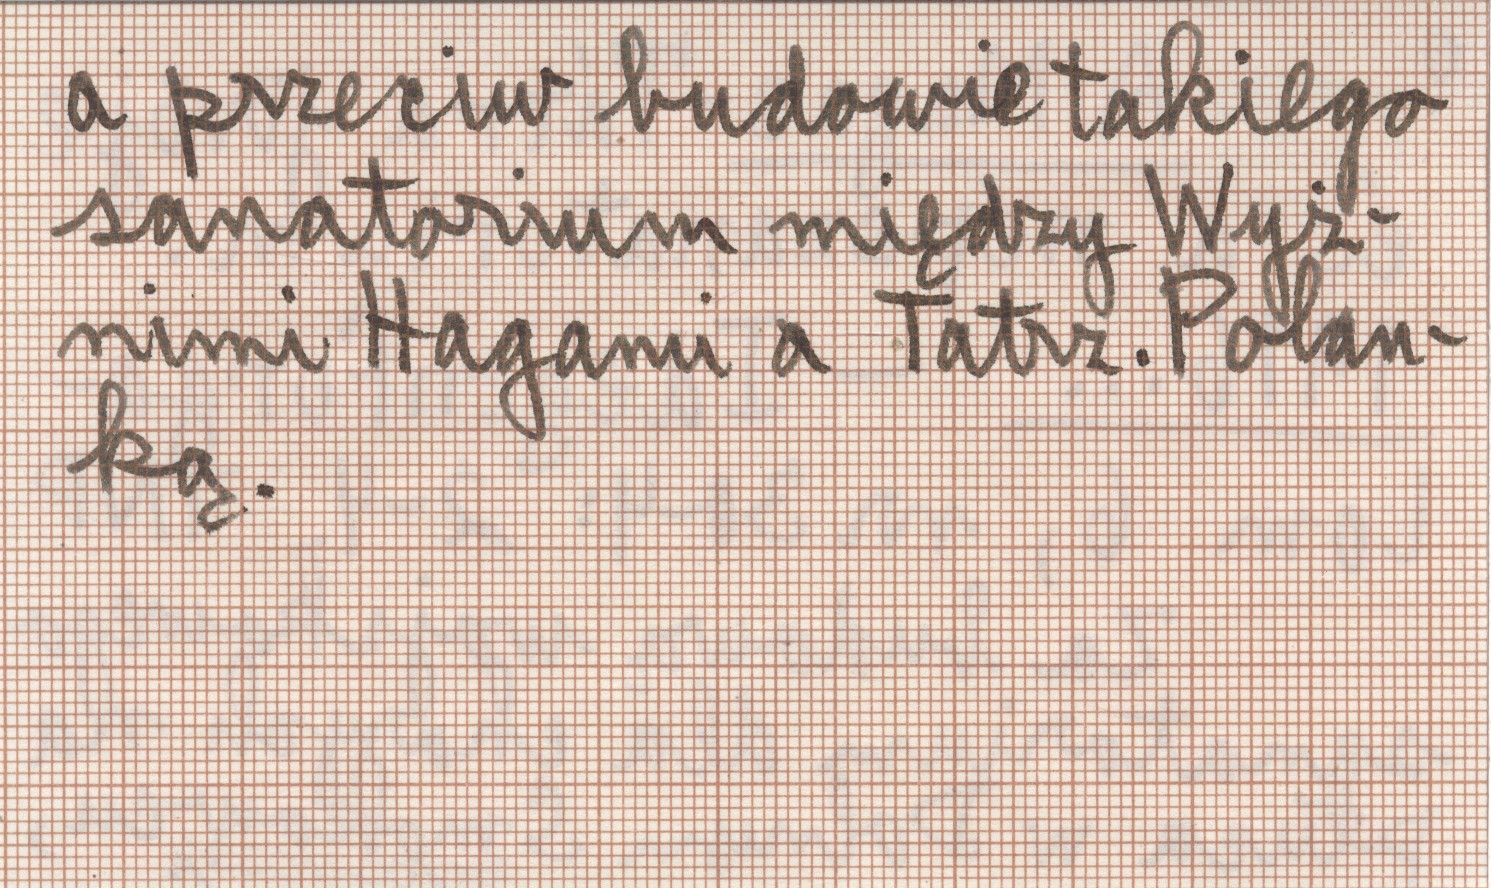 a przeciw budowie takiego
sanatorium między Wyż-
nimi Hagami a Tatrz. Polan-
ką.